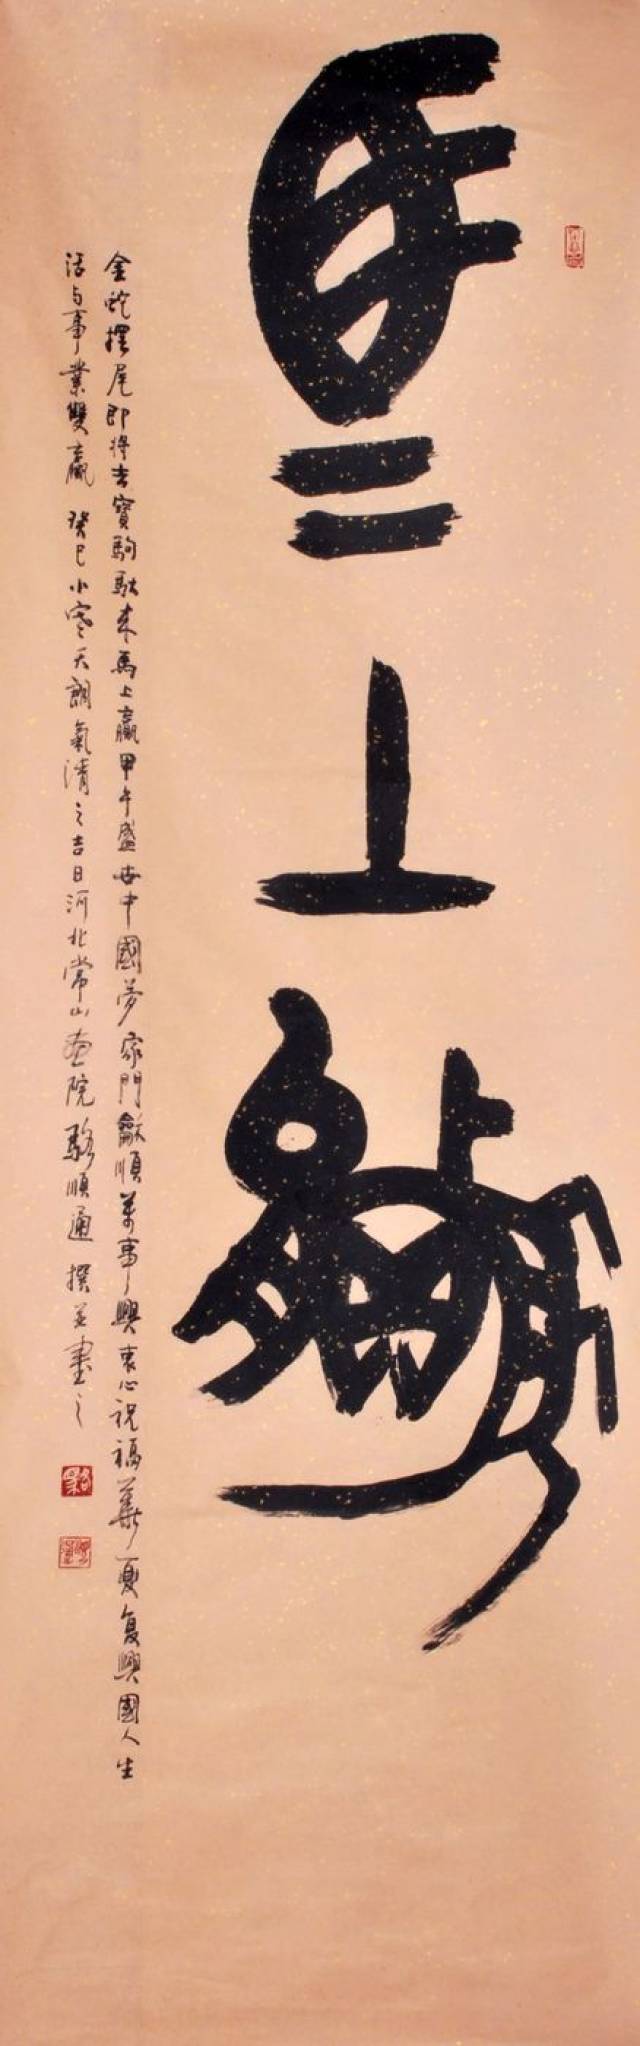 馬上贏
金蛇擺尾即將去寶駒馱來馬上贏甲午盛世中國夢家門龢順萬事興衷心祝福華夏復興國人生
活与事業雙贏 癸巳小寒天朗氣清之吉日河北常山畫院駱順通撰并書之